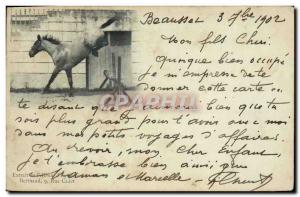 Beausset 3 7bre 1902
Mon fils Cheri.
Quoique bien occupé
je m'empresse de te
donner cette carte en
te disant que bien que tu
sois plus grand pour t'avoir avec moi
dans mes petits voyages d'affaires.
Au revoir, mon cher Enfant,
je t'embrasse bien ainsi que
maman et Marcelle.
CPARAMA